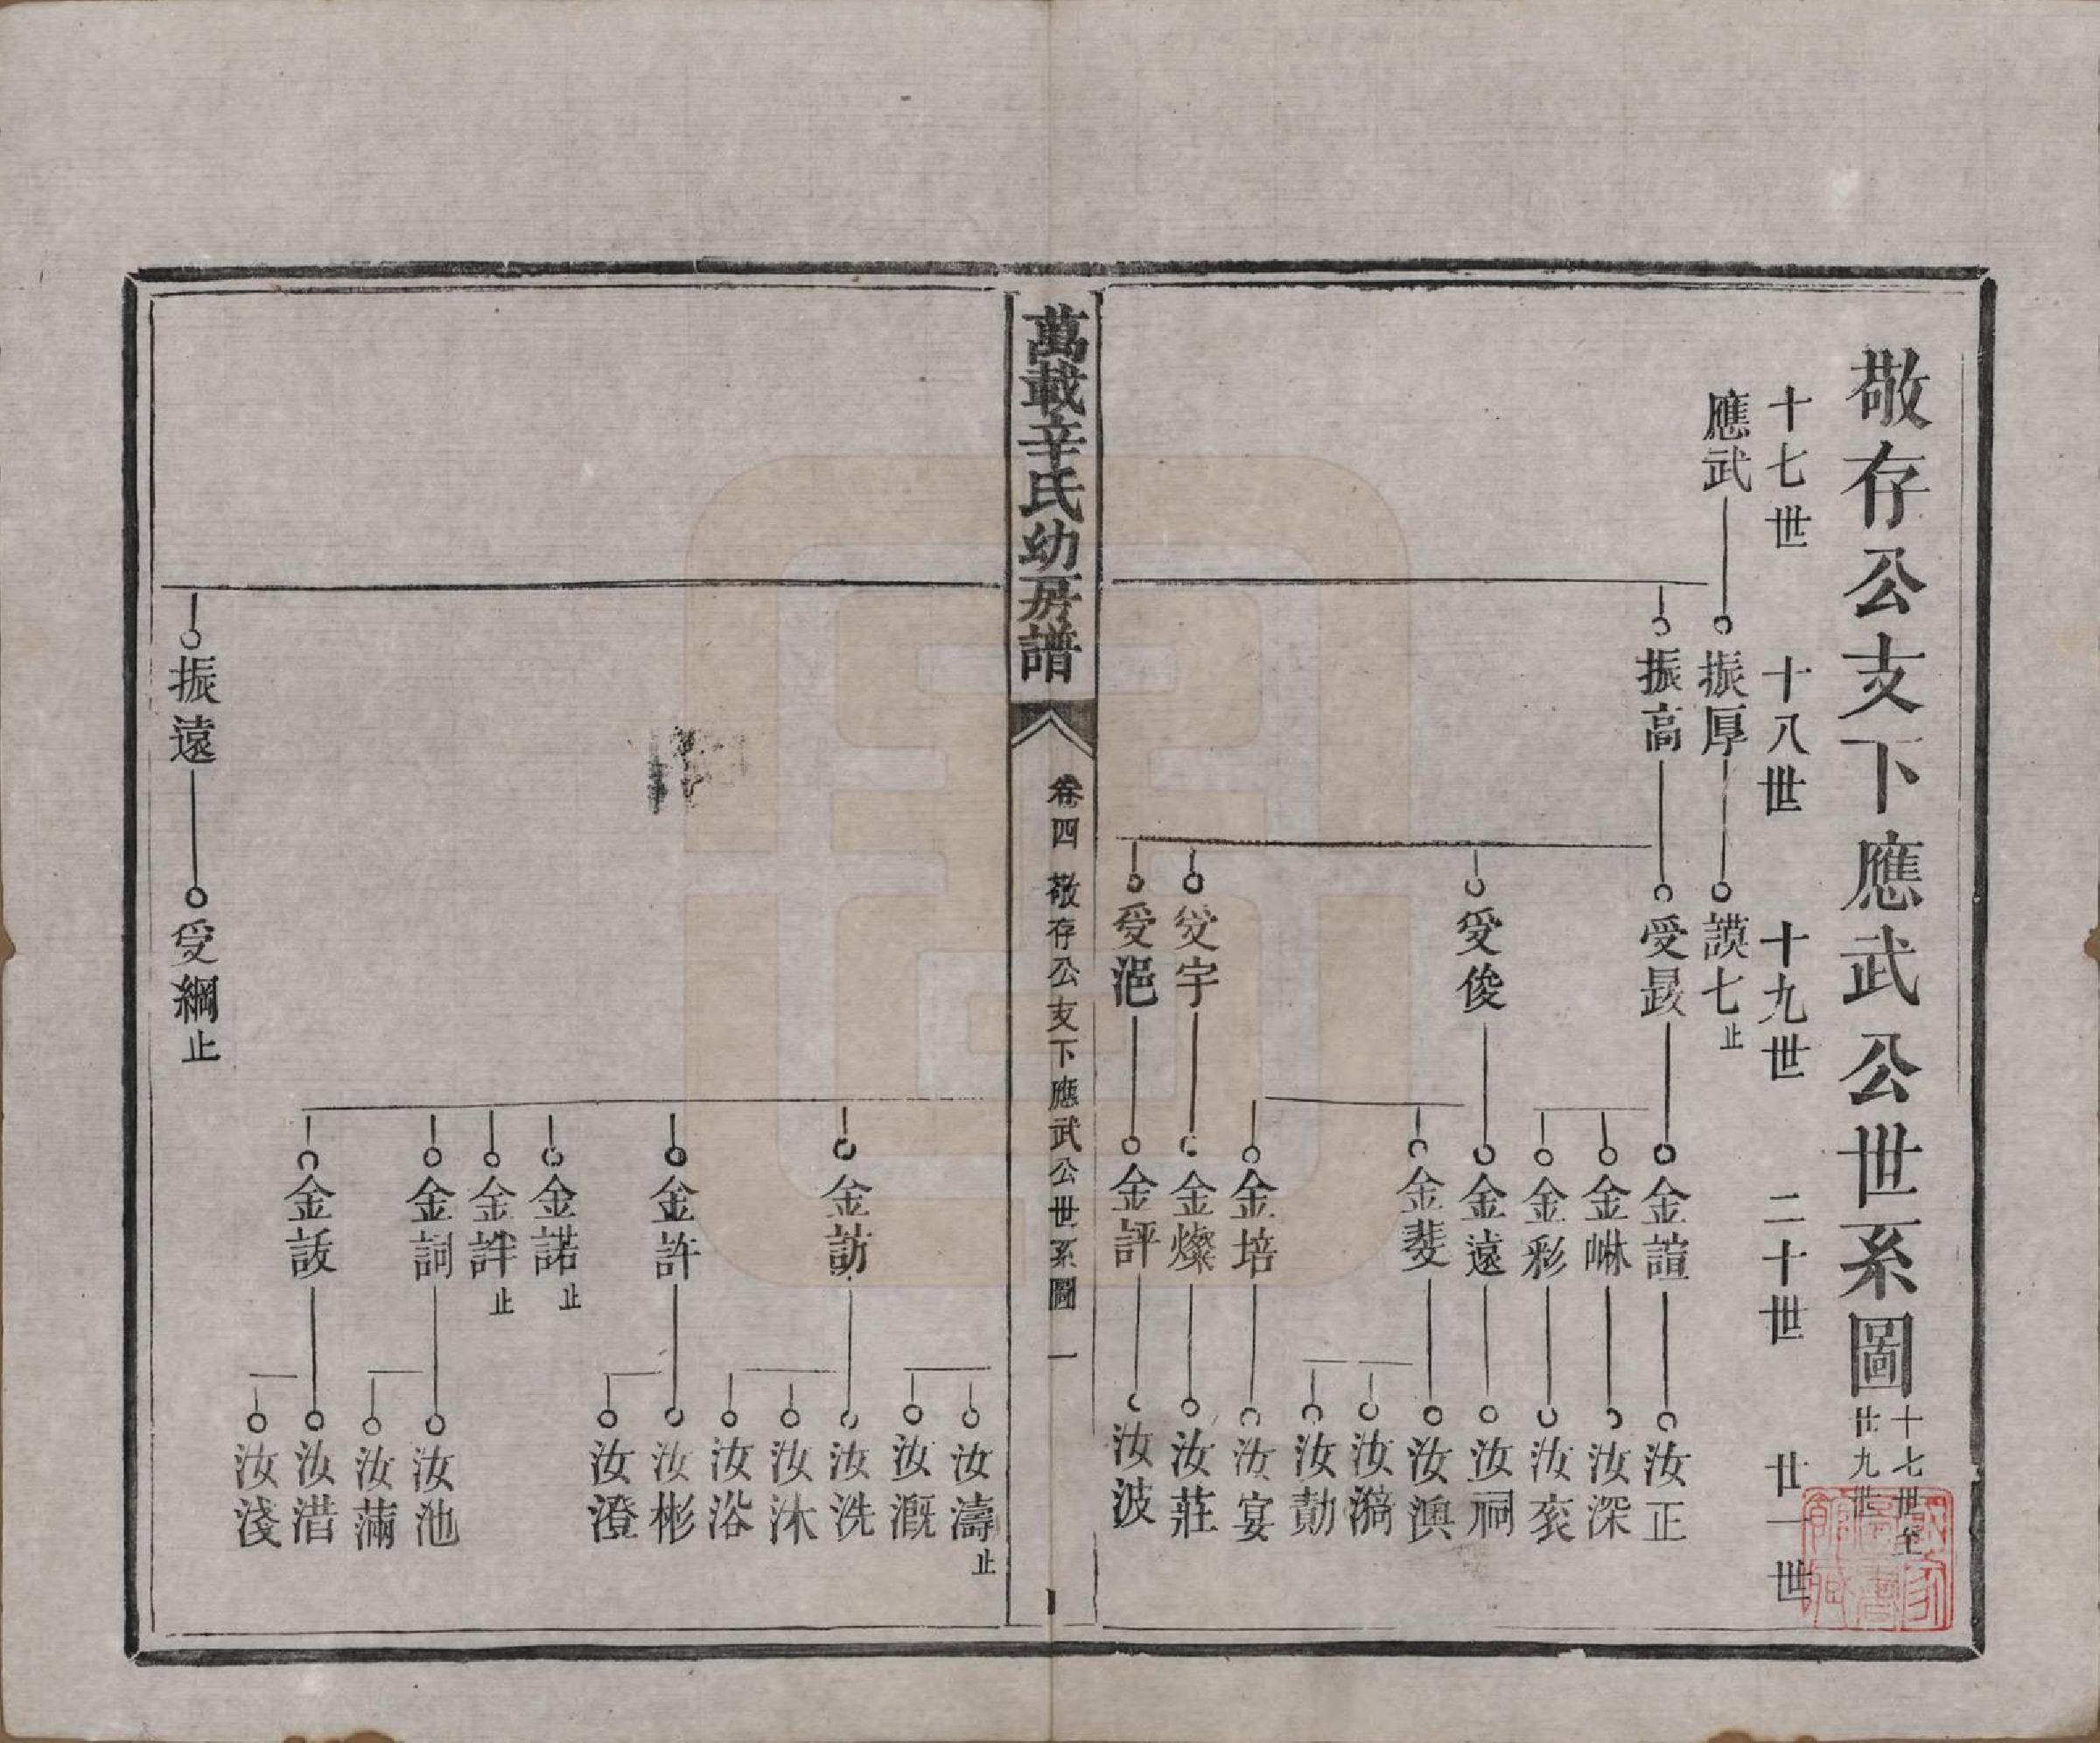 敬存公支下應武公世系圖
十七世至
廿九世
十七世
十八世
十九世
二十世
廿一世
應武
振厚
謨七止
振高
受晸
金諠
汝正
金崊
汝深
金彩
汝衮
受俊
金遠
汝祠
金斐
汝澳
汝漪
汝勣
金培
汝宴
受宇
金燦
汝莊
受浥
金評
汝波
萬載辛氏幼房譜
卷四
敬存公支下應武公世系圖
一
汝濤止
汝溉
金訪
汝洗
汝沐
汝浴
金許
汝彬
汝澄
金諾止
金詳止
金詞
汝池
汝滿
金話
汝漝
汝淺
振遠
受綱止